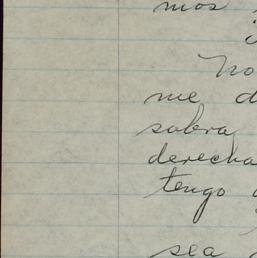 mos
No
me d
sobra
derecha
tengo
sea